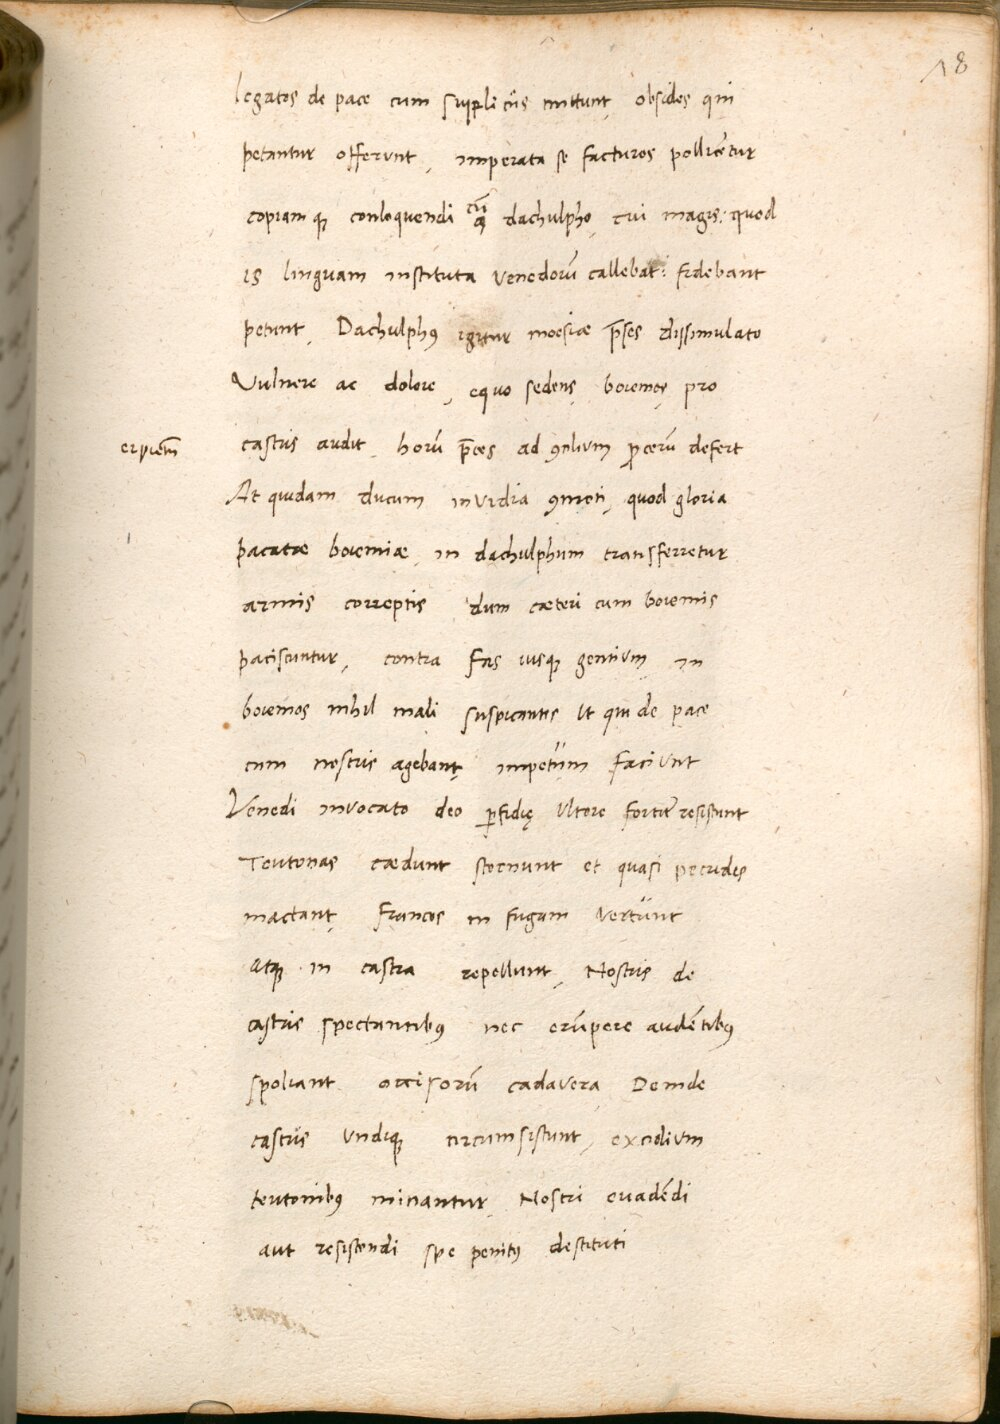 18
legatos de pace cum suppliciis mittunt, obsides qui
petantur offerunt, imperata se facturos pollicētur
copiamqꝫ conloquendi cū dachulpho, cui magis: quod
is linguam instituta Venedorū callebat: fidebant
petunt, Dachulphꝰ igitur moesiæ p̄ses dissimulato
Vulnere ac dolore, equo sedens, boiemos, pro
castris audit, horū p̄ces ad ꝯsilium ꝓcerū defert
At quidam ducum inuidia ꝯmoti, quod gloria
pacatæ boiemiæ, in dachulphum transferretur
armis correptis dum cæteri cum boiemis
paciscuntur, contra fas iusqꝫ gentium in
boiemos nihil mali suspicantis Ut qui de pace
cum nostris agebant, impetum faciunt
Venedi inuocato deo ꝑfidię Vltore fortit̄ resistunt
Teutonas cædunt sternunt et quasi pecudes
mactant, francos in fugam Vertunt
atqꝫ in castra repellunt, Nostris de
castris spectantibꝰ nec erūpere audētibꝰ
spoliant occisorū cadauera Deinde
castris Vndiqꝫ circumsistunt, excidium
teutonibꝰ minantur, Nostri euadēdi
aut resistendi spe penitꝰ destituti